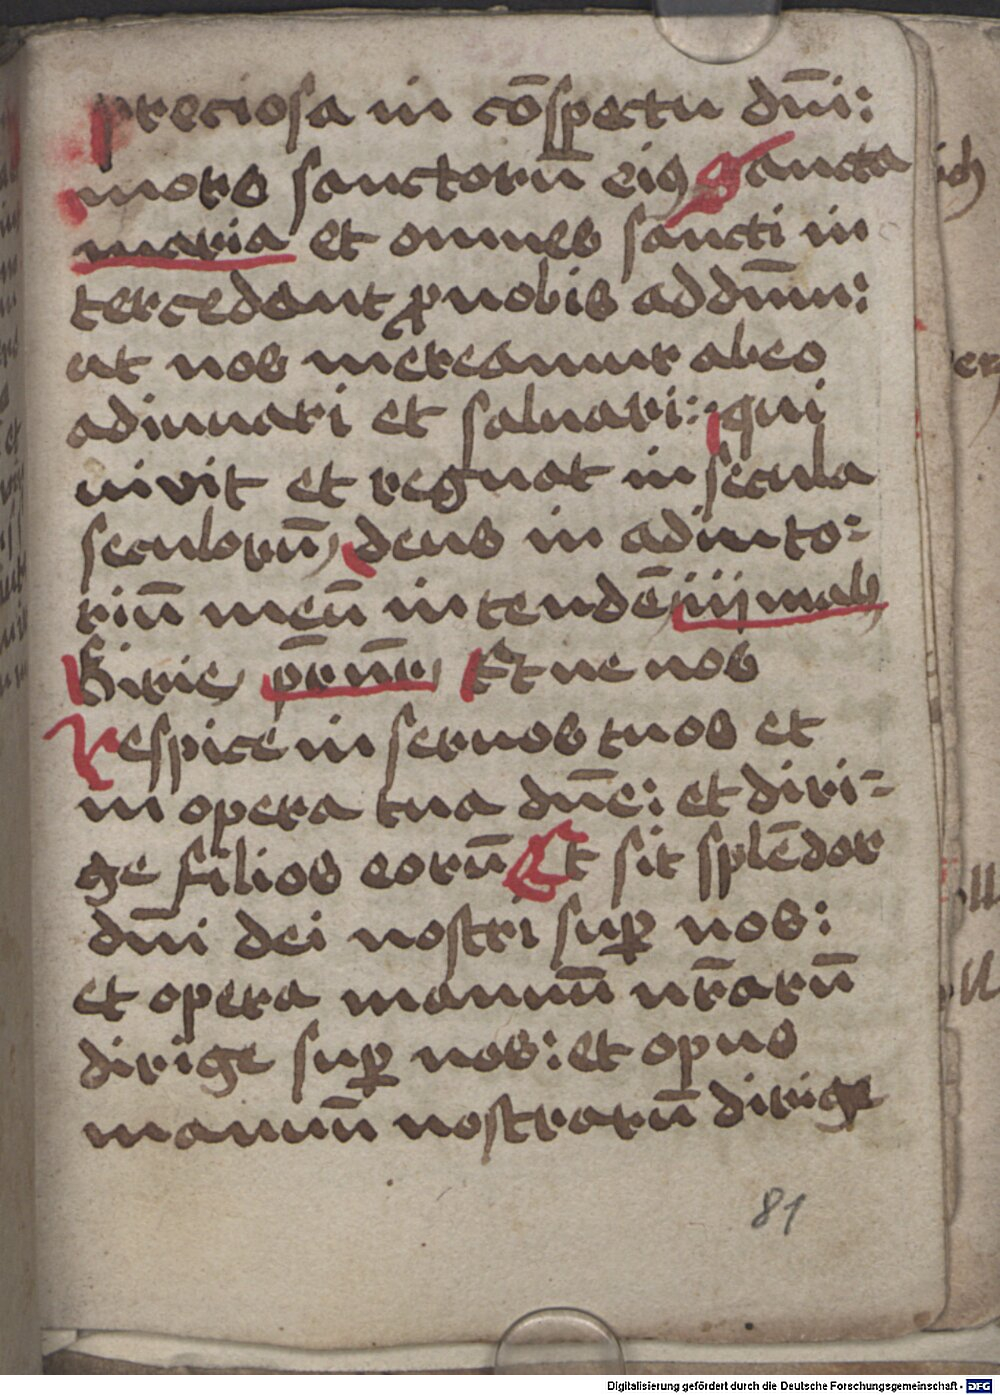 preciosa in cōspectu dn̄i:
mors sanctorū eiꝰ Sancta
maria et omnes sancti in
tercedant ꝓ nobis ad dn̄m:
ut nos mereamur ab eo
adiuuari et saluari: qui
uivit et regnat in secula
seculorū deus in adiuto-
riū meū intendē iij mal
Kirie pr̄ nr̄ Et ne nos
Respice in seruos tuos et
in opera tua dn̄e: et diri-
ge filios eorū Et sit splēdor
dn̄i dei nostri suꝑ nos:
et opera manuū nr̄arū
dirige suꝑ nos: et opus
manuū nostrarū dirige
81
Digitalisierung gefördert durch die Deutsche Forschungsgemeinschaft - DFG